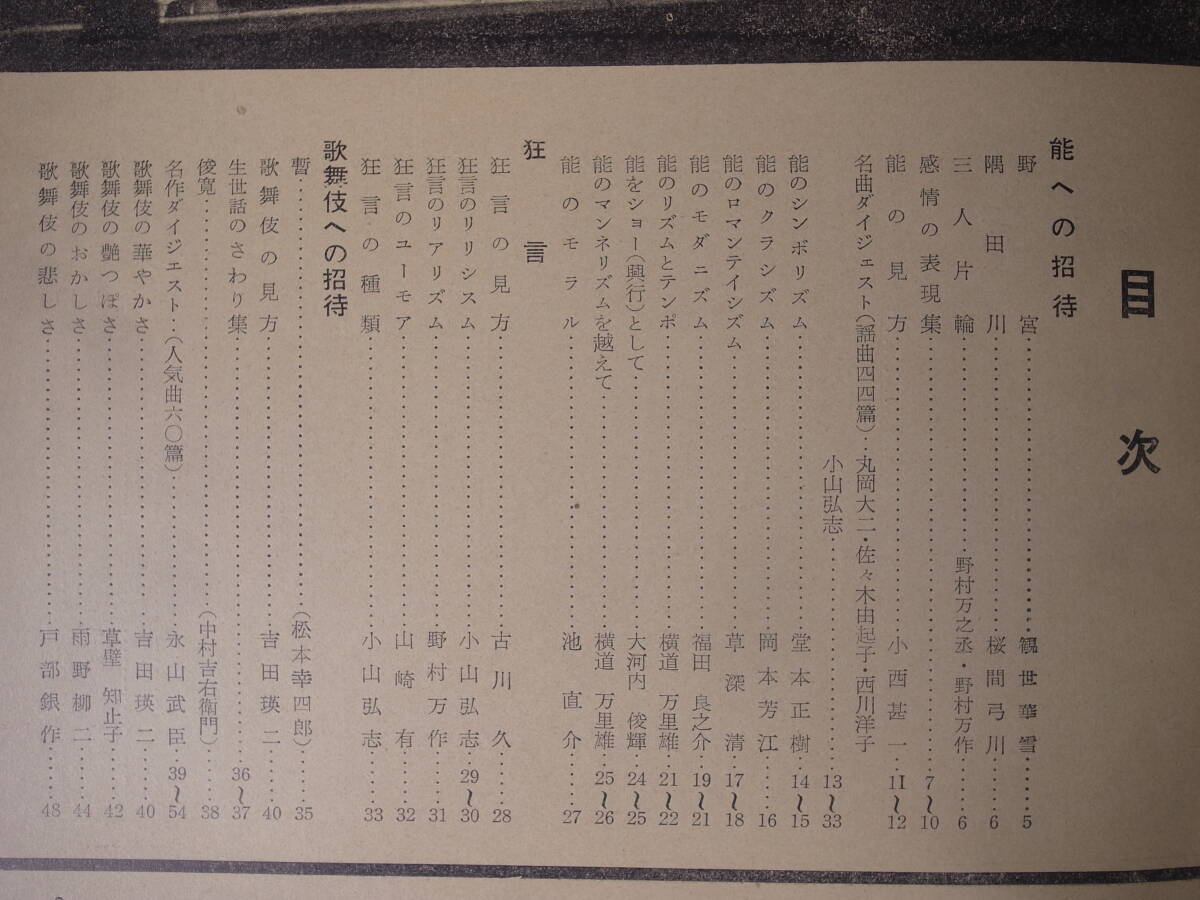 目次
能への招待
野宮……………………観世華雪……5
隅田川……………………桜間弓川……6
三人片輪……………野村万之丞・野村万作……6
感情の表現集……………………7〜10
能の見方……………………小西甚一……11〜12
名曲ダイジェスト（謡曲四四篇）‥丸岡大二・佐々木由起子・西川洋子
小山弘志……………………13〜33
能のシンボリズム……………………堂本正樹……14〜15
能のクラシズム……………………岡本芳江……16
能のロマンテイシズム……………………草深清……17〜18
能のモダニズム……………………福田良之介……19〜21
能のリズムとテンポ……………………横道万里雄……21〜22
能をショー（興行）として……………………大河内俊輝……24〜25
能のマンネリズムを越えて……………………横道万里雄……25〜26
能のモラル……………………池直介……27
狂言
狂言の見方……………………古川久……28
狂言のリリシスム……………………小山弘志……29〜30
狂言のリアリズム……………………野村万作……31
狂言のユーモア……………………山崎有……32
狂言の種類……………………小山弘志……33
歌舞伎への招待
暫……………………（松本幸四郎）……35
歌舞伎の見方……………………吉田瑛二……40
生世話のさわり集……………………36〜37
俊寛……………………（中村吉右衛門）……38
名作ダイジェスト‥（人気曲六〇篇）……………………永山武臣……39〜54
歌舞伎の華やかさ……………………吉田瑛二……40
歌舞伎の艶つぽさ……………………草壁知止子……42
歌舞伎のおかしさ……………………雨野柳二……44
歌舞伎の悲しさ……………………戸部銀作……48